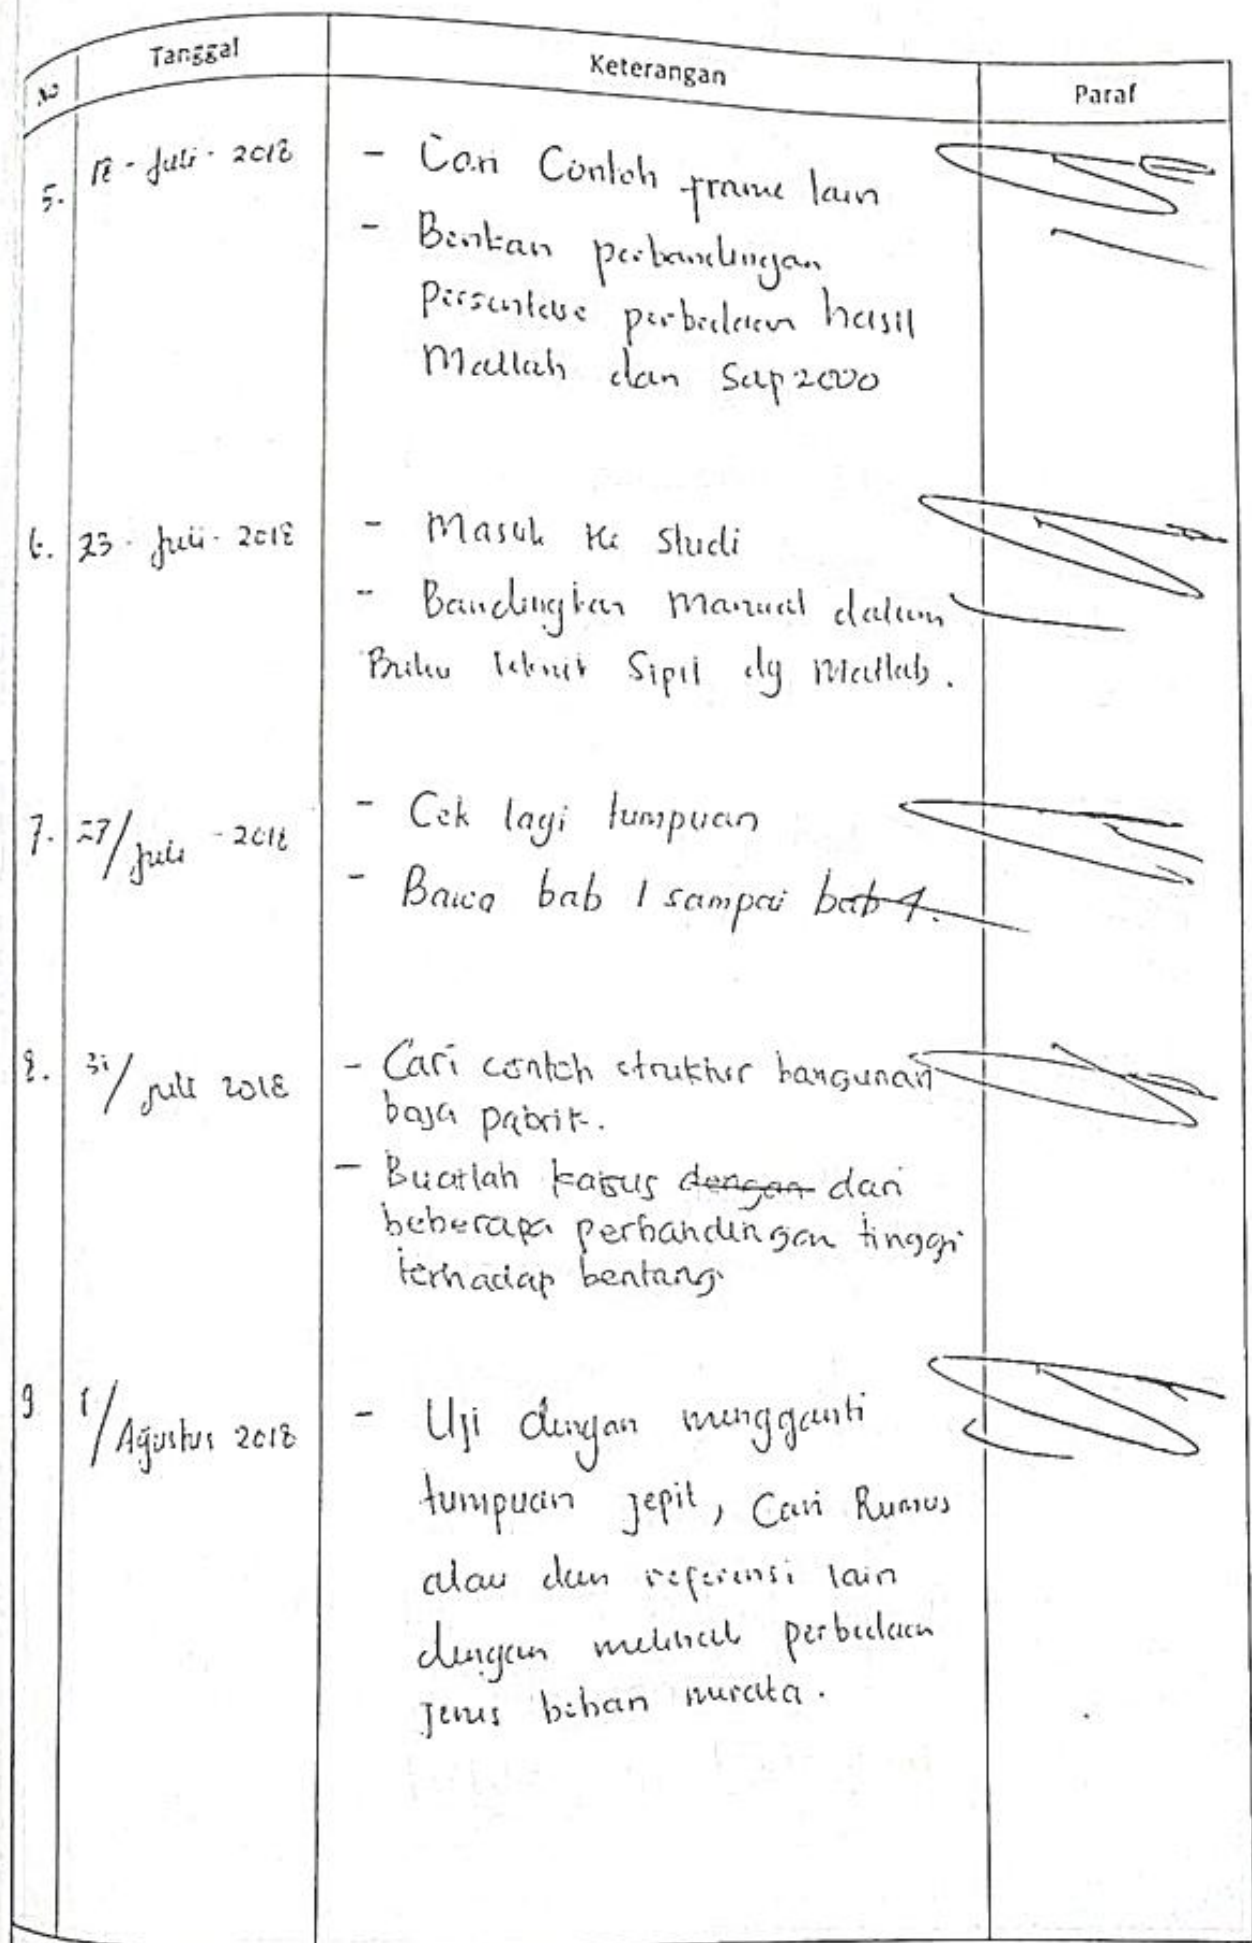 No Tanggal Keterangan Paraf
5. 18 - Juli - 2018 - Cari Contoh frame lain
- Berikan perbandingan
Persentase perbedaan hasil
Matlab dan Sap2000
6. 23 - Juli - 2018 - Masuk Ke Studi
- Bandingkan Manual dalam
Buku teknik Sipil dg Matlab.
7. 27/Juli - 2018 - Cek lagi tumpuan
- Bawa bab 1 sampai bab 4.
8. 31/Juli 2018 - Cari contoh struktur bangunan
baja pabrik.
- Buatlah kasus dengan dari
beberapa perbandingan tinggi
terhadap bentang
9 1/Agustus 2018 - Uji dengan mengganti
tumpuan jepit, Cari Rumus
atau dan referensi lain
dengan melihat perbedaan
Jenis beban merata.